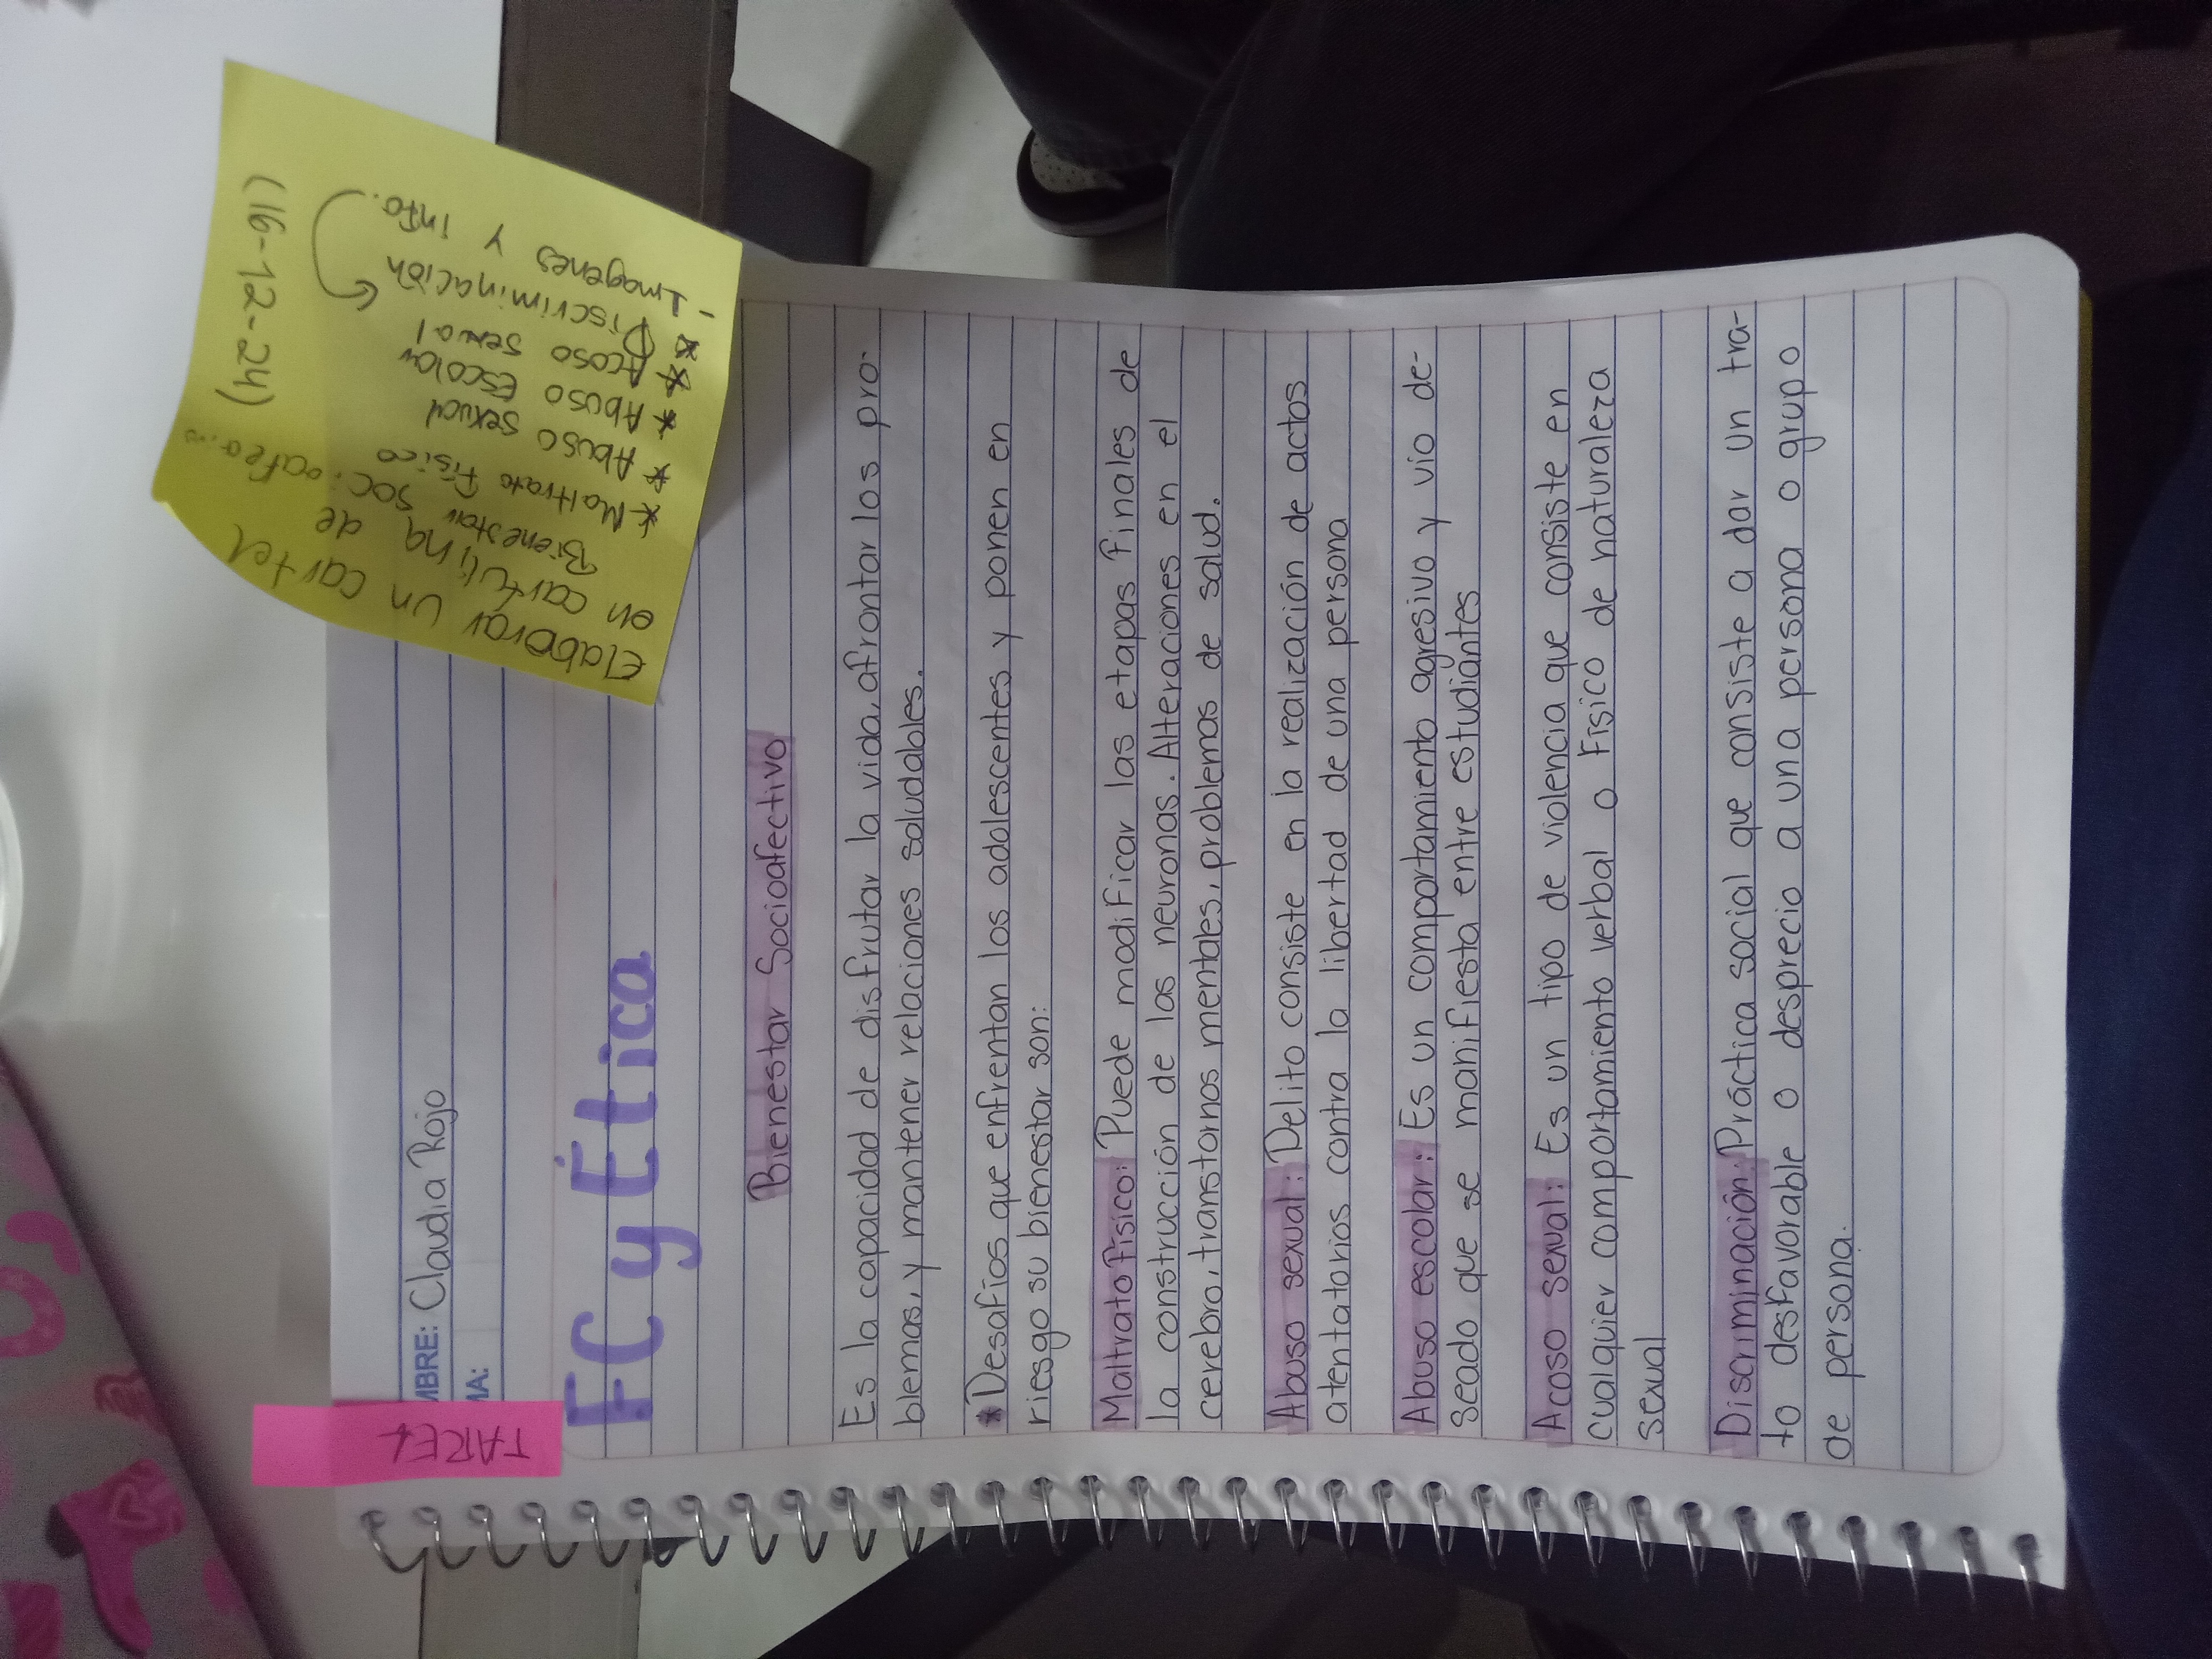 MBRE: Claudia Rojo
MA:
TAREA
FC y Ética
Bienestar Socioafectivo
Es la capacidad de disfrutar la vida, afrontar los pro-
blemas, y mantener relaciones saludables.
* Desafíos que enfrentan los adolescentes y ponen en
riesgo su bienestar son:
Maltrato físico: Puede modificar las etapas finales de
la construcción de las neuronas. Alteraciones en el
cerebro, transtornos mentales, problemas de salud.
Abuso sexual: Delito consiste en la realización de actos
atentatorios contra la libertad de una persona
Abuso escolar: Es un comportamiento agresivo y vio de-
seado que se manifiesta entre estudiantes
Acoso sexual: Es un tipo de violencia que consiste en
cualquier comportamiento verbal o físico de naturaleza
sexual
Discriminación: Práctica social que consiste a dar un tra-
to desfavorable o desprecio a una persona o grupo
de persona.
Elaborar un cartel
en cartulina de
Bienestar socioafea...
* Maltrato físico
* Abuso sexual
* Abuso Escolar
* Acoso sexual
* Discriminación
- Imagenes y info.
(16-12-24)